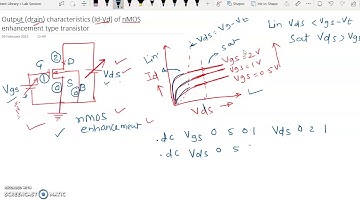 Content Library > Lab Session
Output (drain) characteristics (Id-Vd) of nMOS
enhancement type transistor
Lin
Vds = Vgs-Vt
sat
Lin Vds < Vgs-Vt
Sat Vds >
Id
Vgs = 2V
Vgs = 1V
Vgs = 0.5V
Vds
G
D
S
B
Vgs
Vds
nMOS
enhancement
.dc Vgs 0 5 0.1 Vds 0 2 1
.dc Vds 0 5
RECORDED WITH
SCREENCAST MATIC